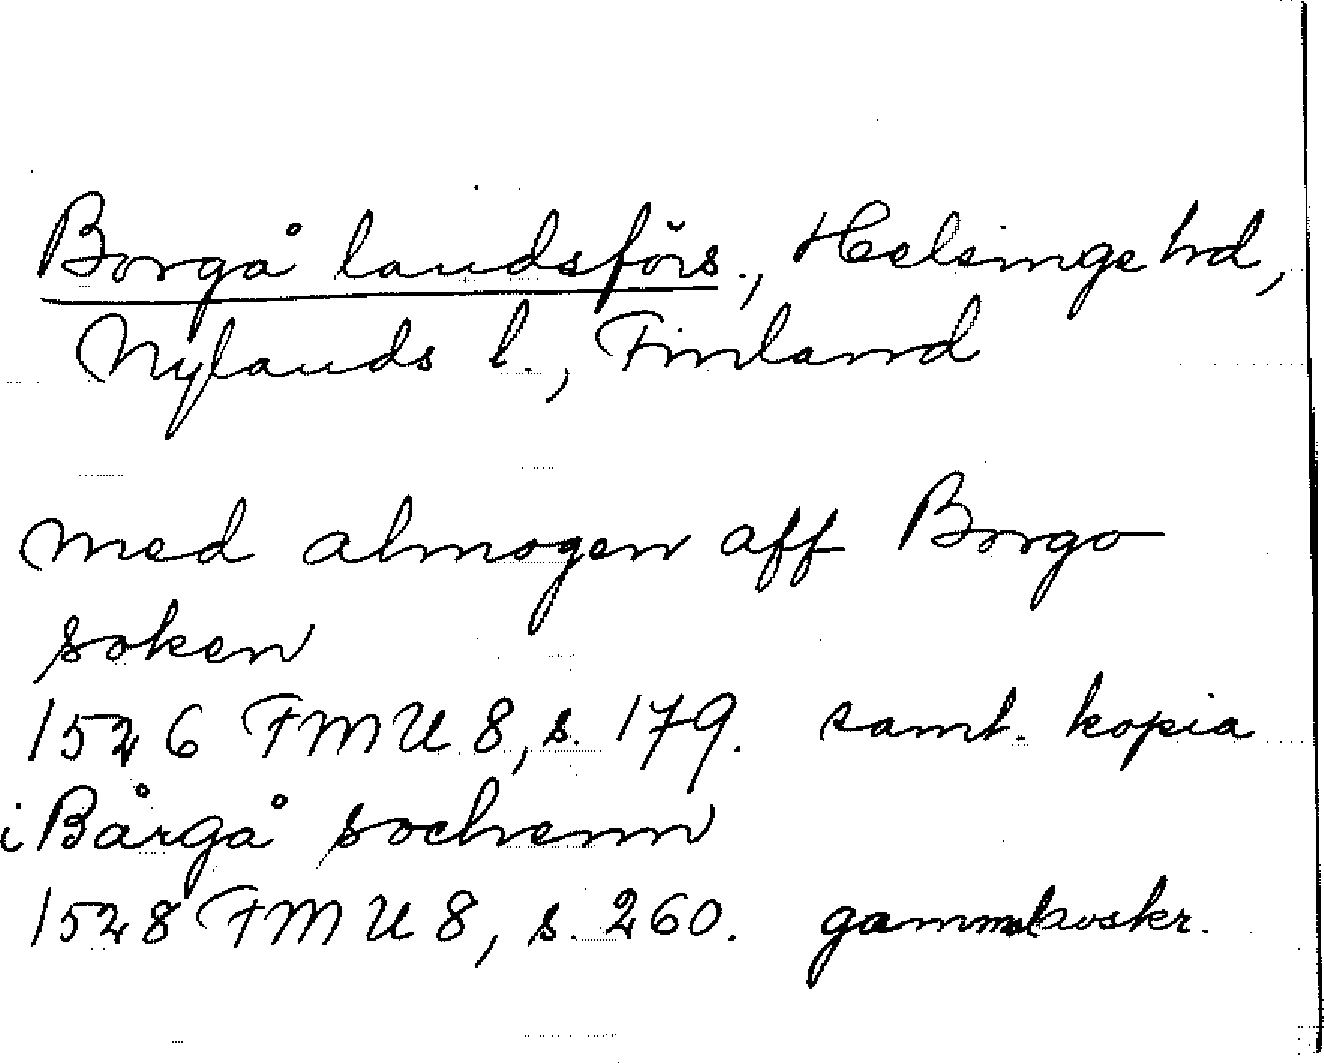 Borgå landsförs., Helsinge hd,
Nylands l., Finland
med almogen aff Borgo
soken
1526 FMU 8, s. 179. samt. kopia
i Bårgå sochenn
1528 FMU 8, s. 260. gammal avskr.